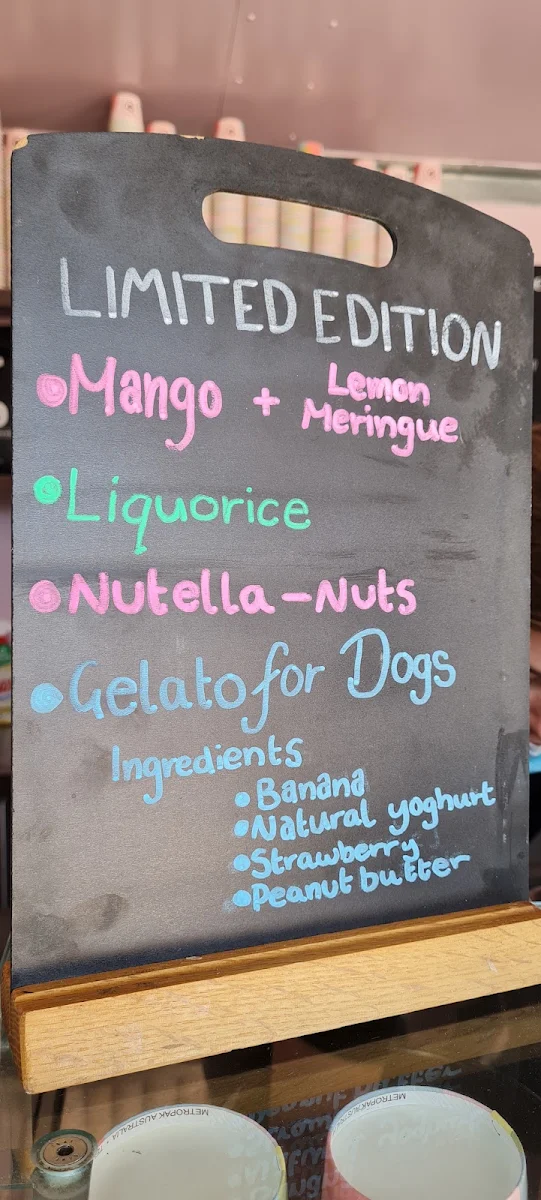 LIMITED EDITION
Mango + Lemon Meringue
Liquorice
Nutella-Nuts
Gelato for Dogs
Ingredients
• Banana
• Natural yoghurt
• Strawberry
• Peanut butter
METROPAK AUSTRALIA
METROPAK AUSTRA